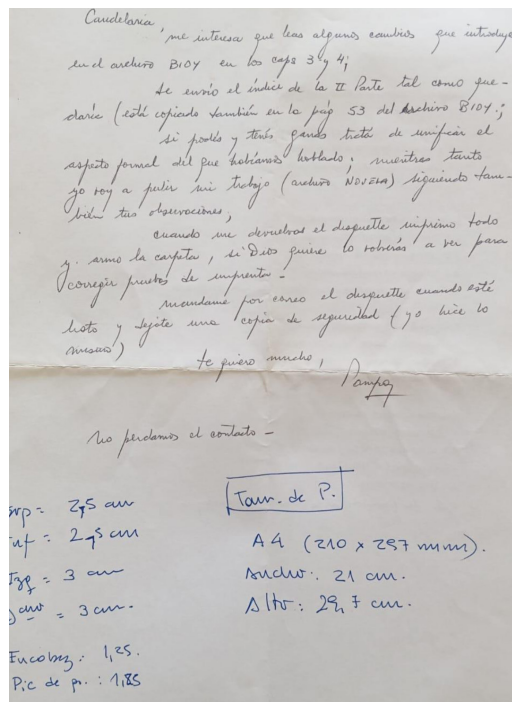 Candelaria,
me interesa que leas algunos cambios que introduje
en el archivo BIOY en los caps 3 y 4;
te envío el índice de la II Parte tal como que-
daría (está copiado también en la pág 53 del archivo BIOY;
si podés y tenés ganas tratá de unificar el
aspecto formal del que habíamos hablado; mientras tanto
yo voy a pulir mi trabajo (archivo NOVELA) siguiendo tam-
bién tus observaciones;
cuando me devuelvas el disquette imprimo todo
y armo la carpeta, si Dios quiere lo volverás a ver para
corregir pruebas de imprenta -
mandame por correo el disquette cuando esté
listo y dejate una copia de seguridad (yo hice lo
mismo)
te quiero mucho,
Pampa
No perdamos el contacto -
sup = 2,5 cm
inf = 2,5 cm
Izq = 3 cm
= 3 cm.
Encabez.: 1,25.
Pie de p.: 1,85
Tam. de P.
A4 (210 x 297 mm).
Ancho: 21 cm.
Alto: 29,7 cm.